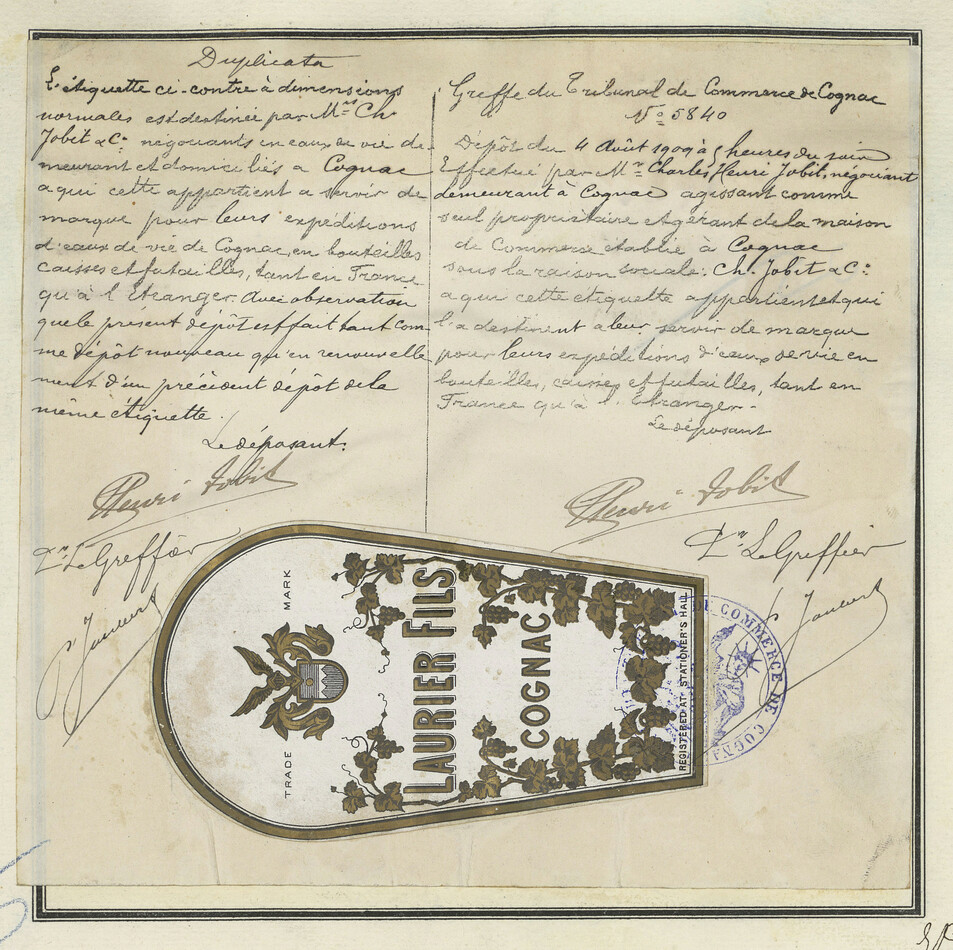 Duplicata
L'étiquette ci-contre à dimensions
normales est destinée par Mrs Ch.
Jobit & Co négociants en eaux de vie de-
meurant et domiciliés à Cognac
a qui cette appartient a servir de
marque pour leurs expéditions
d'eaux de vie de Cognac, en bouteilles
caisses et futailles, tant en France
qu'à l'Etranger. Avec observation
que le présent dépôt est fait tant com-
me dépôt nouveau qu'en renouvelle
ment d'un précédent dépôt de la
même étiquette.
Le déposant:
Henri Jobit
Le Greffier
Greffe du Tribunal de Commerce de Cognac
No 5840
Dépôt du 4 Août 1909 à 5 heures du soir
Effectué par Mr Charles Henri Jobit, négociant
demeurant à Cognac agissant comme
seul propriétaire et gérant de la maison
de Commerce établie à Cognac
sous la raison sociale: Ch. Jobit & Co
a qui cette étiquette appartient et qui
l'a destinent a leur servir de marque
pour leurs expéditions d'eaux de vie en
bouteilles, caisses et futailles, tant en
France qu'à l'Etranger.
Le déposant
Henri Jobit
Le Greffier
TRADE MARK
LAURIER FILS
COGNAC
REGISTERED AT STATIONER'S HALL
COMMERCE DE COGN